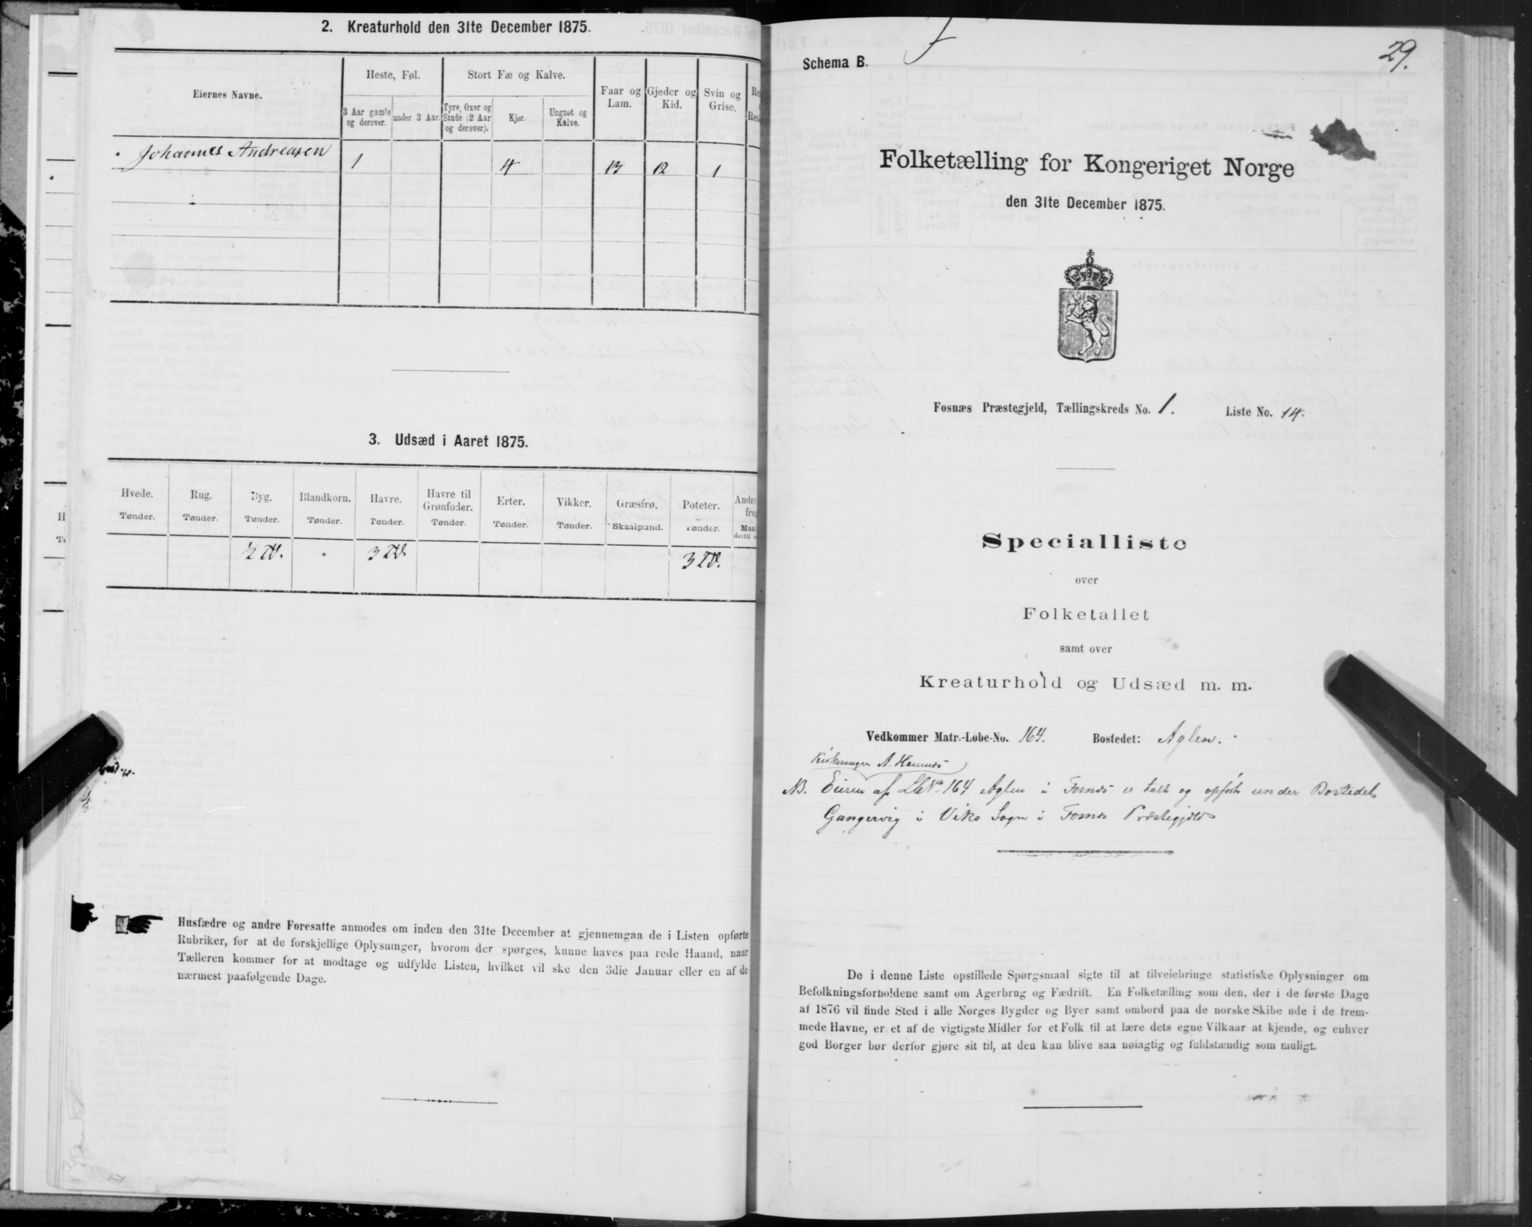 2. Kreaturhold den 31te December 1875.
Eiernes Navne.
Heste, Føl.
Stort Fæ og Kalve.
Faar og Lam.
Gjeder og Kid.
Svin og Grise.
3 Aar gamle og derover.
under 3 Aar.
Tyre, Oxer og Stude (2 Aar og derover).
Kjør.
Ungnøt og Kalve.
Johannes Andreasen 1 4 13 12 1
3. Udsæd i Aaret 1875.
Hvede. Rug. Byg. Blandkorn. Havre. Havre til Grønfoder. Erter. Vikker. Græsfrø. Poteter.
Tønder. Tønder. Tønder. Tønder. Tønder. Tønder. Tønder. Tønder. Skaalpund. Tønder.
½ Td. 3 Td. 3 Td.
Husfædre og andre Foresatte anmodes om inden den 31te December at gjennemgaa de i Listen opførte
Rubriker, for at de forskjellige Oplysninger, hvorom der spørges, kunne haves paa rede Haand, naar
Tælleren kommer for at modtage og udfylde Listen, hvilket vil ske den 3die Januar eller en af de
nærmest paafølgende Dage.
Schema B.
29.
Folketælling for Kongeriget Norge
den 31te December 1875.
Fosnæs Præstegjeld, Tællingskreds No. 1. Liste No. 14.
Specialliste
over
Folketallet
samt over
Kreaturhold og Udsæd m. m.
Vedkommer Matr.-Løbe-No. 164. Bostedet: Aglen.
Kirkesanger A. Hemnes
NB. Eieren af LNo 164 Aglen i Fosnes er talt og opført under Bostedet
Gangervig i Viks Sogn i Fosnes Præstegjeld
De i denne Liste opstillede Spørgsmaal sigte til at tilveiebringe statistiske Oplysninger om
Befolkningsforholdene samt om Agerbrug og Fædrift. En Folketælling som den, der i de første Dage
af 1876 vil finde Sted i alle Norges Bygder og Byer samt ombord paa de norske Skibe ude i de frem-
mede Havne, er et af de vigtigste Midler for et Folk til at lære dets egne Vilkaar at kjende, og enhver
god Borger bør derfor gjøre sit til, at den kan blive saa nøiagtig og fuldstændig som muligt.